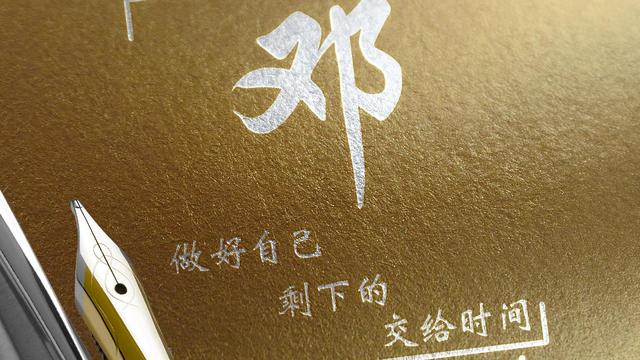 邓
做好自己
剩下的
交给时间